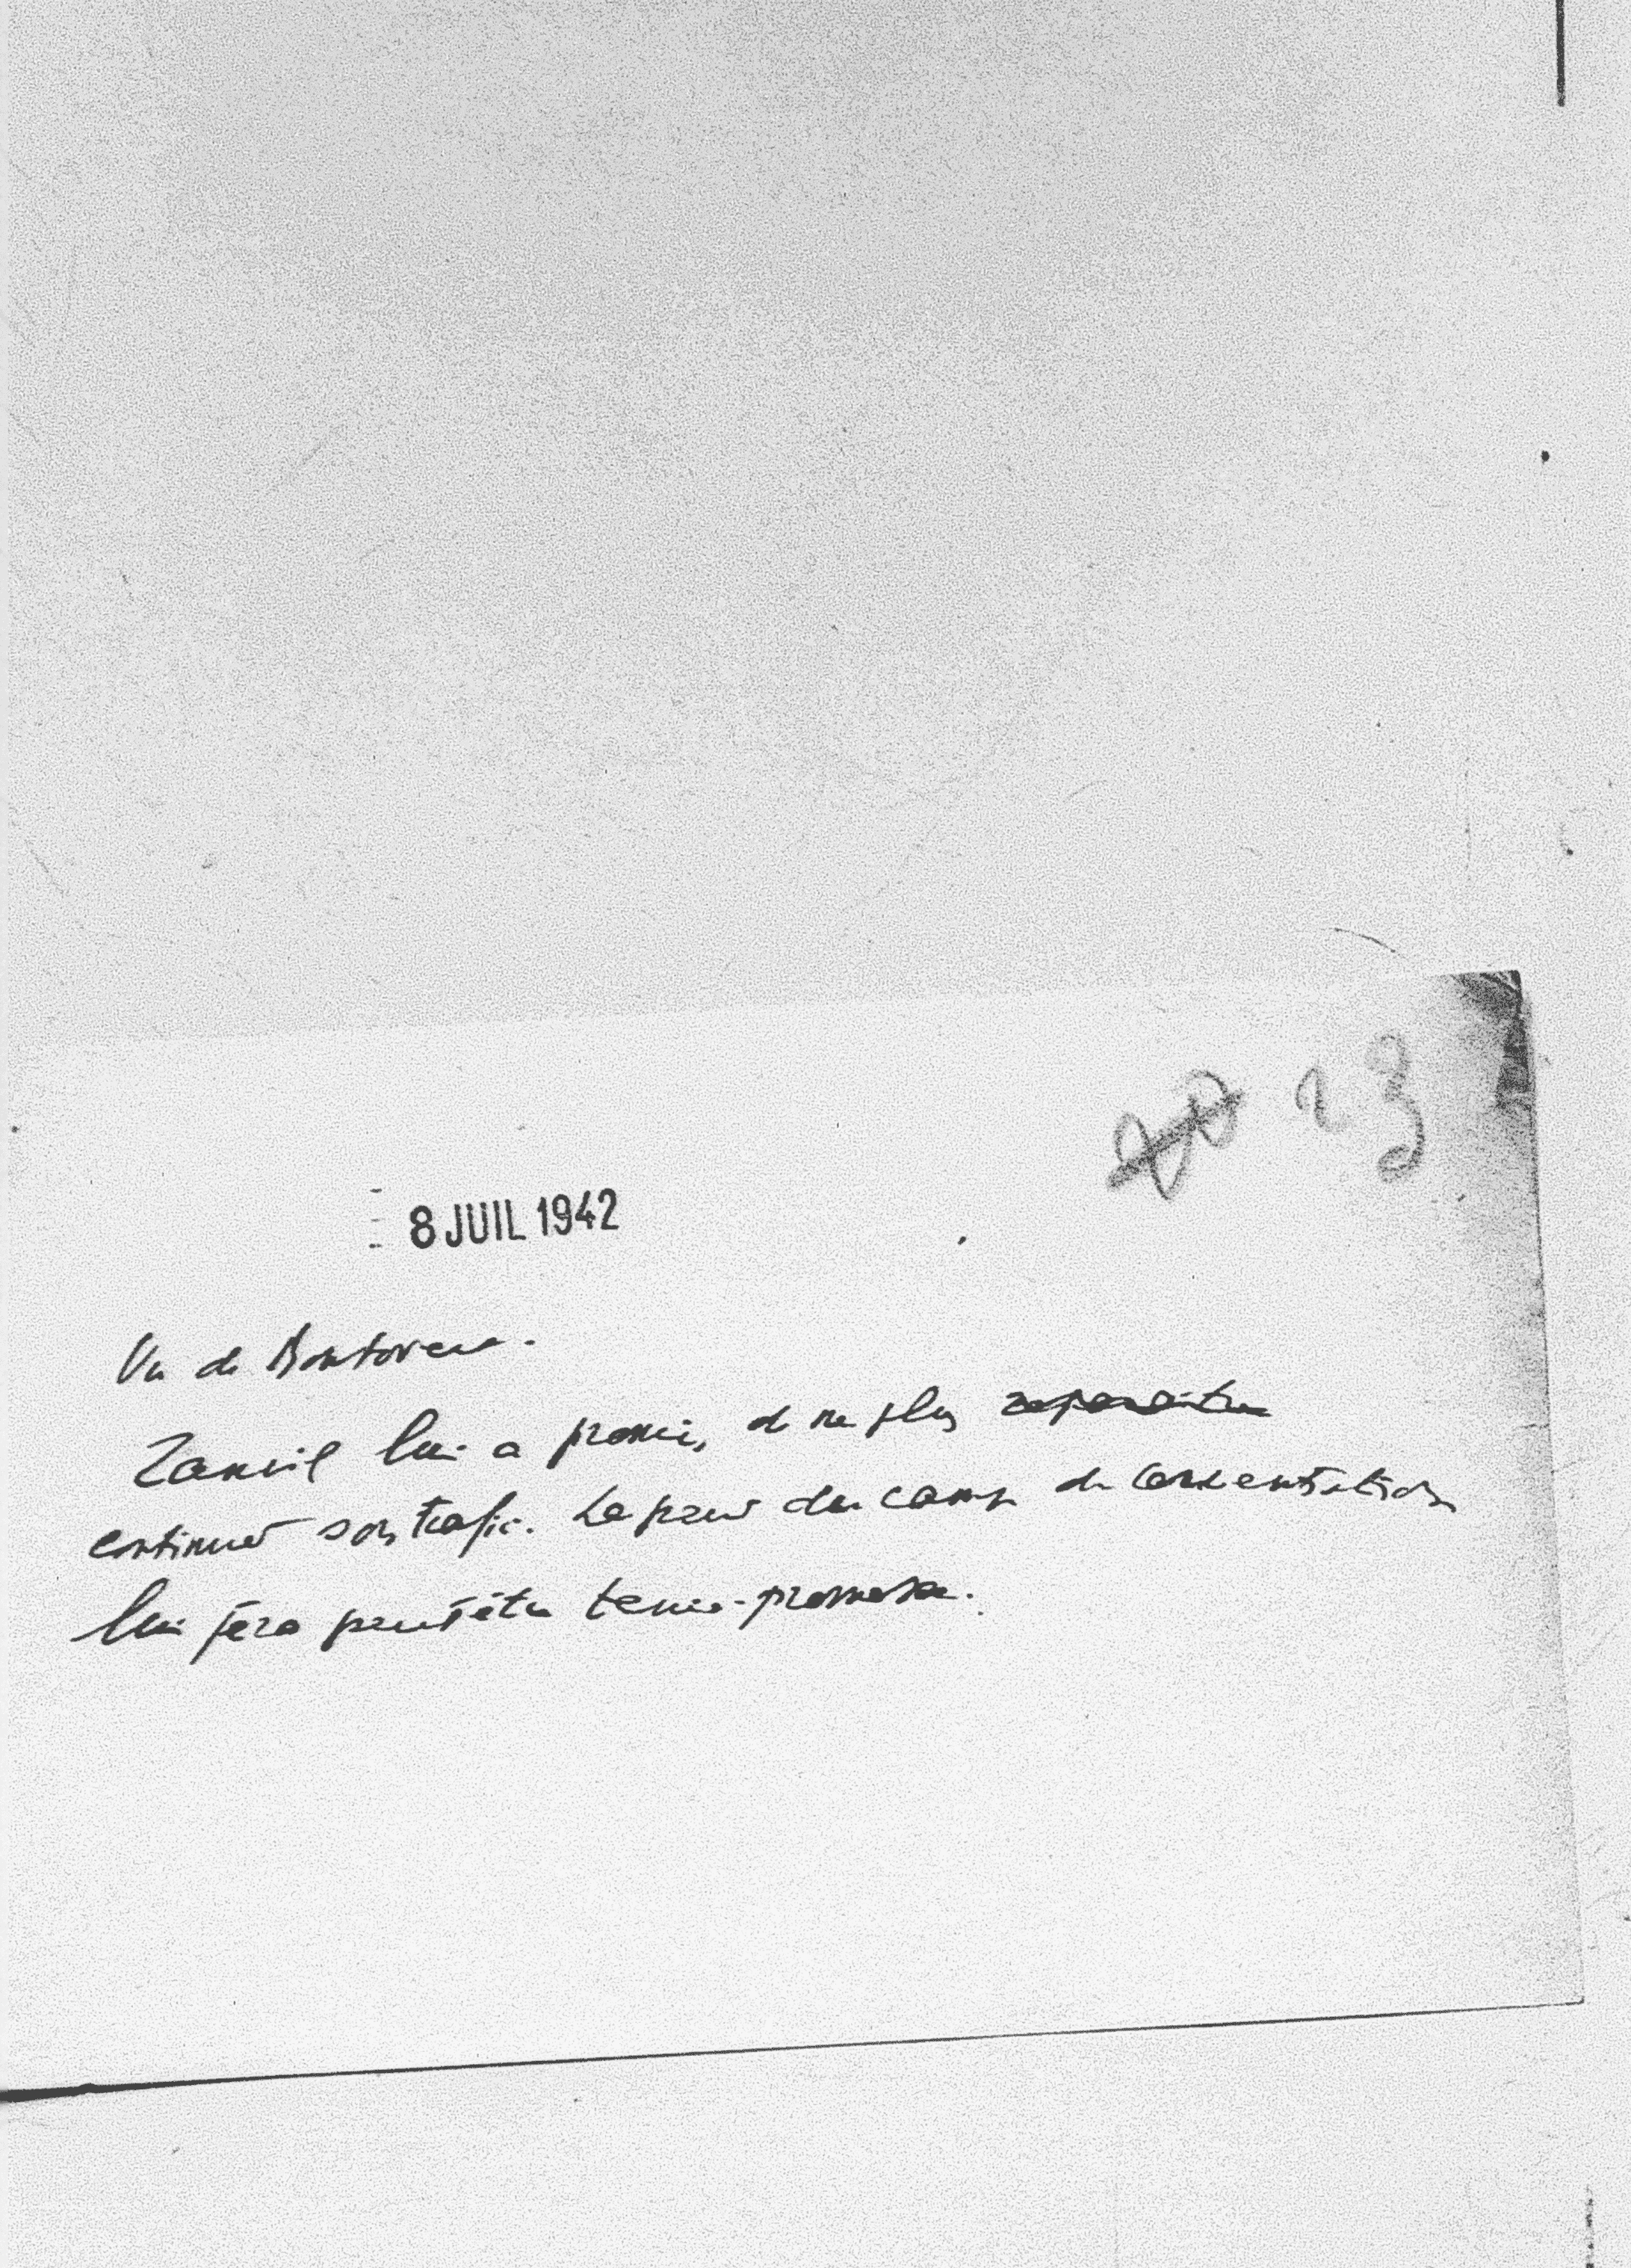 23
8 JUIL 1942
Vu de
Zamil lui a promis de ne plus
continuer son trafic. La peur du camp de concentration
lui fera peut être tenir promesse.